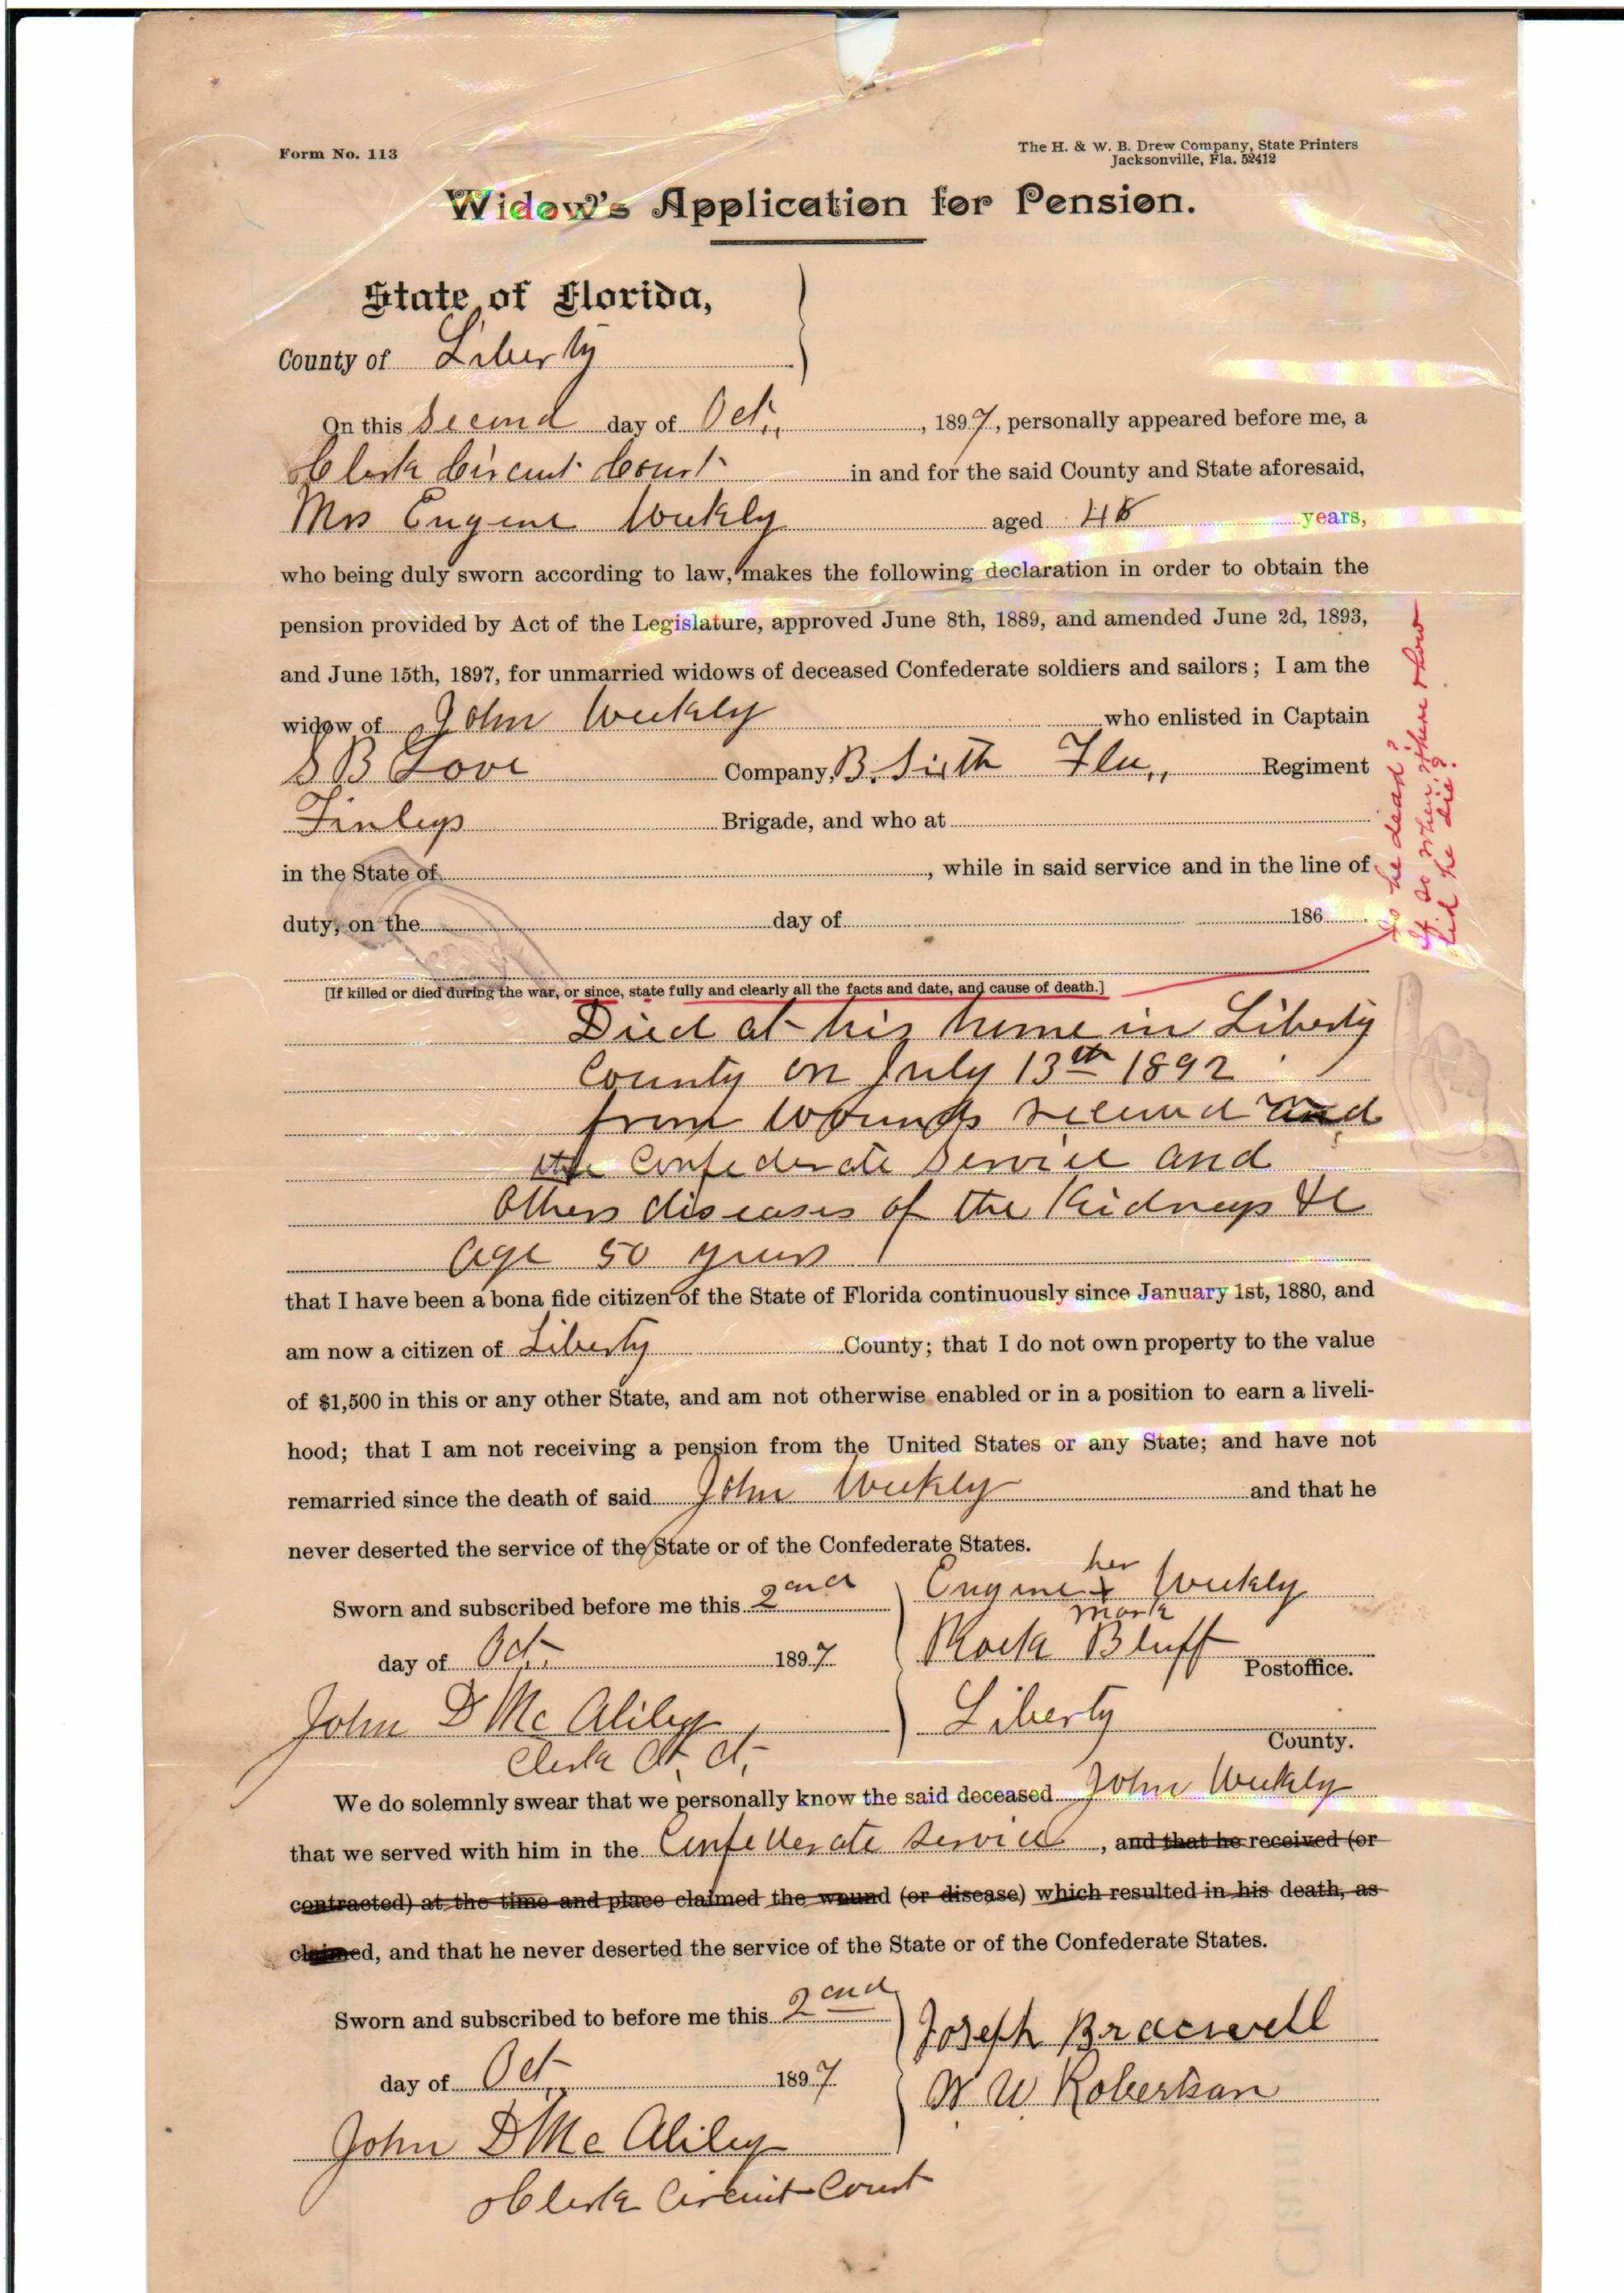 Form No. 113
The H. & W. B. Drew Company, State Printers
Jacksonville, Fla. 52412
Widow's Application for Pension.
State of Florida,
County of Liberty
On this Second day of Oct., 1897, personally appeared before me, a
Clerk Circuit Court in and for the said County and State aforesaid,
Mrs Eugene Weekly aged 48 years,
who being duly sworn according to law, makes the following declaration in order to obtain the
pension provided by Act of the Legislature, approved June 8th, 1889, and amended June 2d, 1893,
and June 15th, 1897, for unmarried widows of deceased Confederate soldiers and sailors; I am the
widow of John Weekly who enlisted in Captain
S B Love Company, B. Sixth Fla., Regiment
Finleys Brigade, and who at
in the State of, while in said service and in the line of
duty, on the day of 186
Is he dead?
If so when, where & how
did he die?
[If killed or died during the war, or since, state fully and clearly all the facts and date, and cause of death.]
Died at his home in Liberty
County on July 13th 1892
from wounds received and
the Confederate Service and
Others diseases of the Kidneys &c
Age 50 years
that I have been a bona fide citizen of the State of Florida continuously since January 1st, 1880, and
am now a citizen of Liberty County; that I do not own property to the value
of $1,500 in this or any other State, and am not otherwise enabled or in a position to earn a liveli-
hood; that I am not receiving a pension from the United States or any State; and have not
remarried since the death of said John Weekly and that he
never deserted the service of the State or of the Confederate States.
her
Sworn and subscribed before me this 2nd Eugene x Weekly
mark
day of Oct. 1897 Rock Bluff Postoffice.
John D McAliley Liberty County.
Clerk Ct. Ct.
We do solemnly swear that we personally know the said deceased John Weekly
that we served with him in the Confederate Service, and that he received (or
contracted) at the time and place claimed the wound (or disease) which resulted in his death, as
claimed, and that he never deserted the service of the State or of the Confederate States.
Sworn and subscribed to before me this 2nd Joseph Bracewell
day of Oct 1897 W. W. Robertson
John D McAliley
Clerk Circuit Court